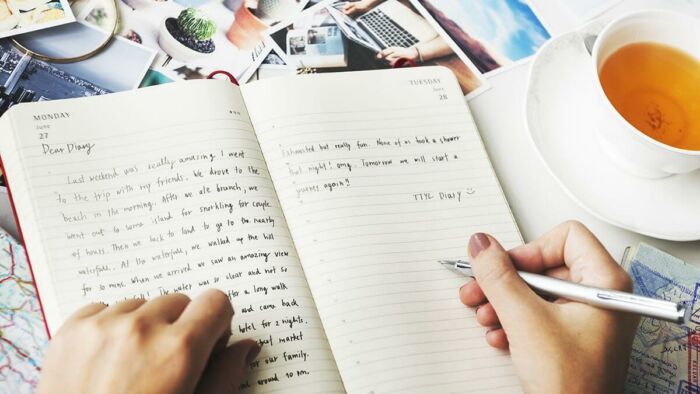 MONDAY
June
27
Dear Diary
Last weekend was really amazing I went
to the trip with my friends. We drove to the
beach in the morning. After we ate brunch, we
went out to some island for snorkling for couple
of hours. Then we back to land to go to the nearby
waterfall. At the waterfall, we walked up the hill
for 30 mins. When we arrived we saw an amazing view
the waterfall. The water was so clear and not so
after a long walk
and came back
hotel for 2 nights.
market
for our family.
around 10 pm.
TUESDAY
June
28
Exhausted but really fun. None of us took a shower
that night! omg. Tomorrow we will start a
journey again!
TTYL Diary